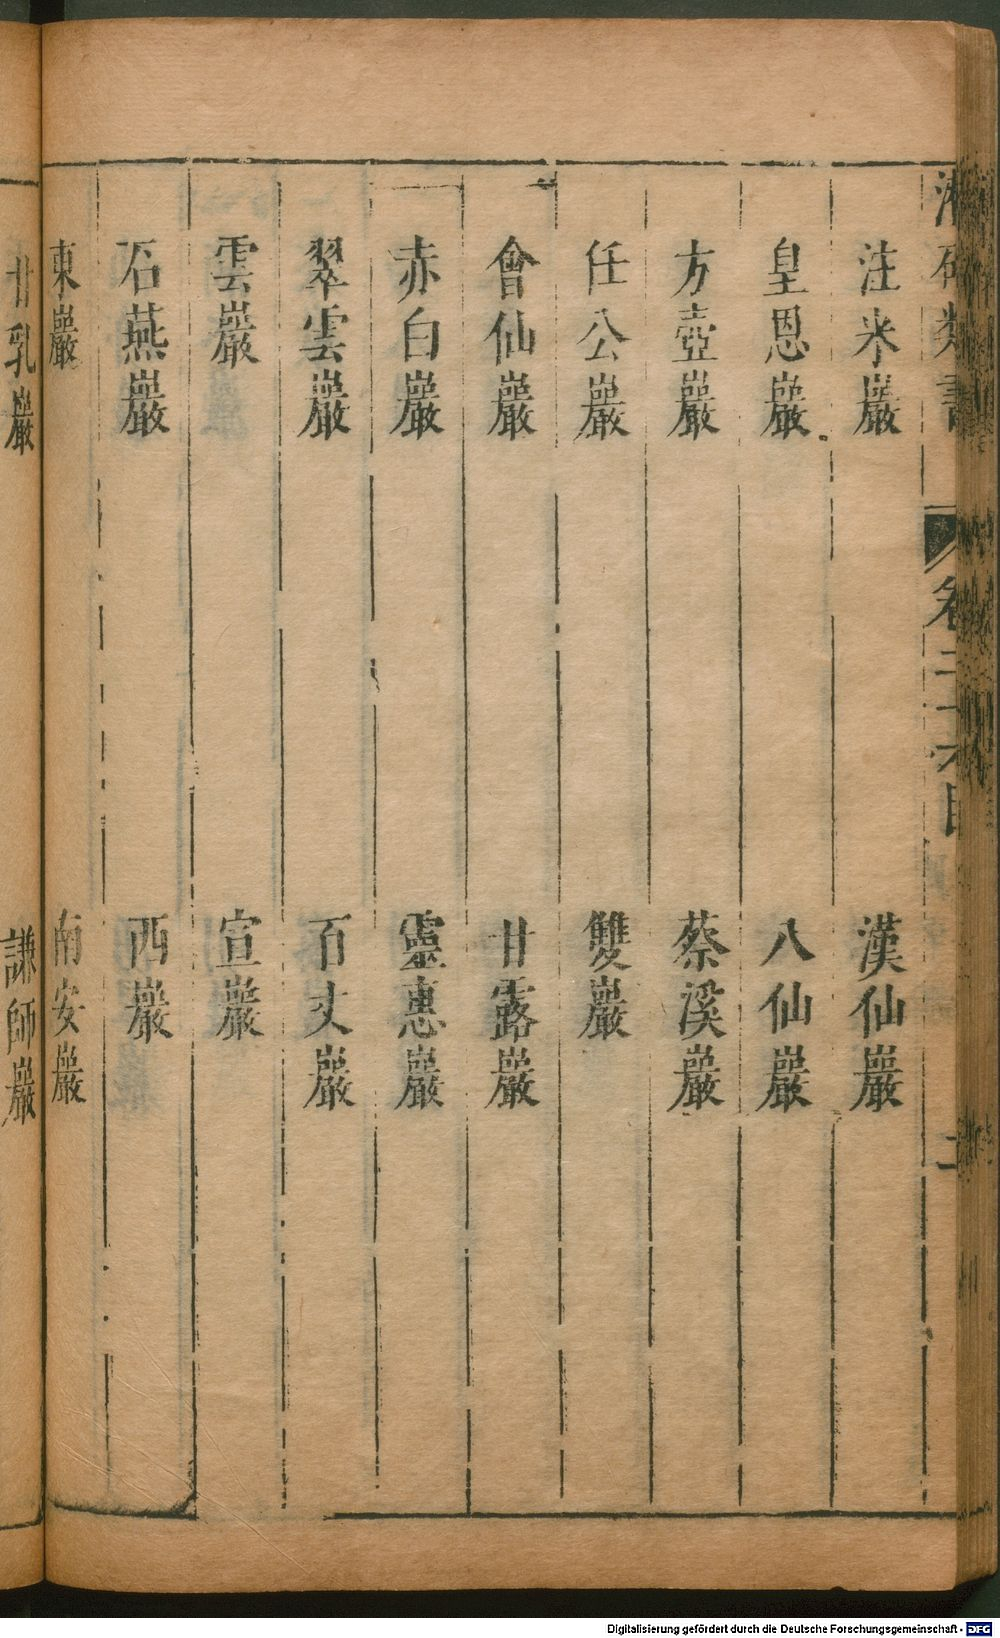 注米巖　漢仙巖
皇恩巖　八仙巖
方壺巖　蔡溪巖
任公巖　雙巖
會仙巖　甘露巖
赤白巖　靈惠巖
翠雲巖　百丈巖
雲巖　宣巖
石燕巖　西巖
東巖　南安巖
乳巖　謙師巖
Digitalisierung gefördert durch die Deutsche Forschungsgemeinschaft - DFG